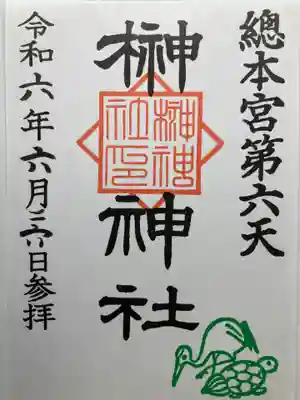 總本宮第六天
榊神社
榊神社印
令和六年六月日参拝